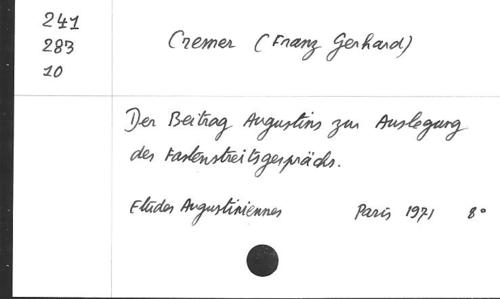 241
283
10
Cremer (Franz Gerhard)
Der Beitrag Augustins zur Auslegung
des Fastenstreitsgesprächs.
Etudes Augustiniennes Paris 1971 8°